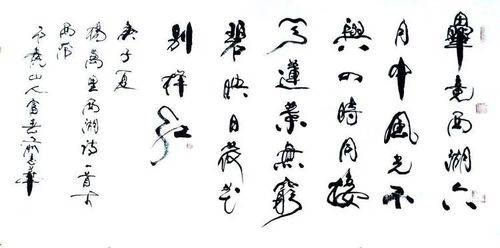 畢竟西湖六
月中風光不
與四時同接
天蓮葉無窮
碧映日荷花
別樣紅
庚子夏
楊萬里西湖詩一首
山人富春